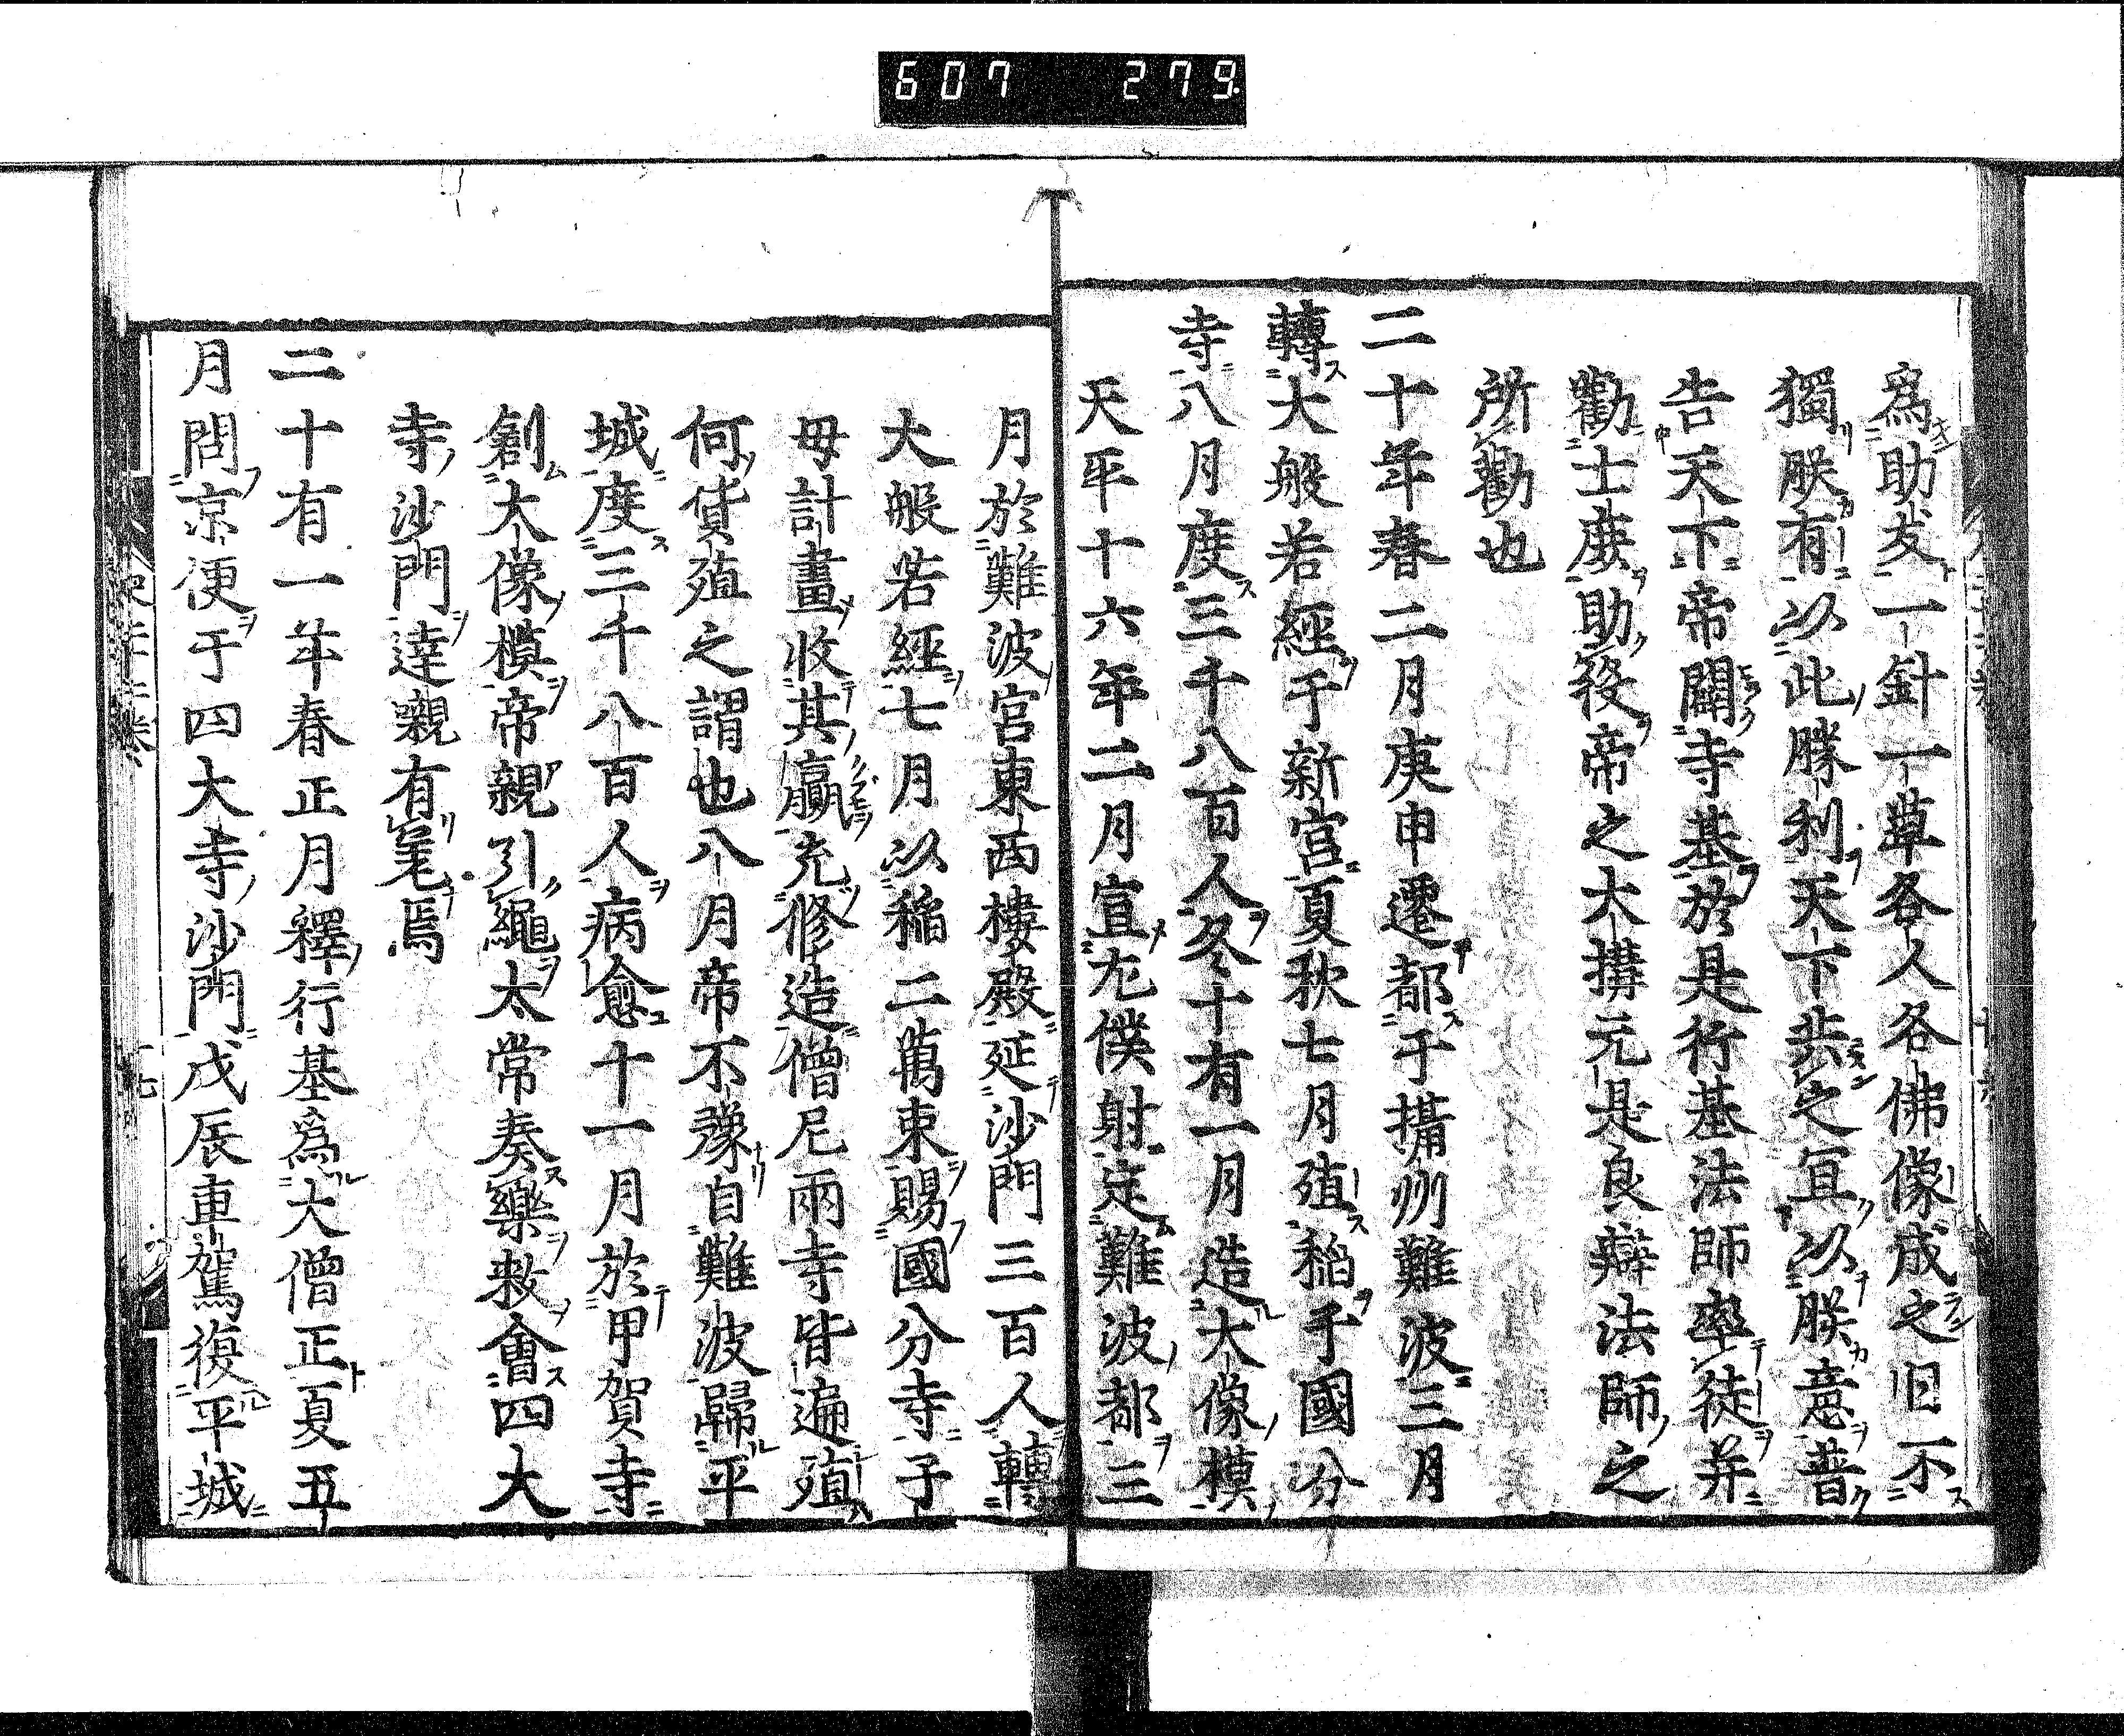 607 279
爲助友一針一草各人各佛像成之旦不
獨朕有以此勝利天下共之冝以朕意普
告天下帝闢寺基於是行基法師率徒并
勸士庻助役帝之大搆元是良辯法師之
所勸也
二十年春二月庚申遷都于攝州難波三月
轉大般若經于新宮夏秋七月殖稻于國分
寺八月度三千八百人冬十有一月造大像模
天平十六年二月宣左僕射定難波都三
月於難波宮東西樓殿延沙門三百人轉
大般若經七月以稲二萬束賜國分寺子
毋計畫收其贏充修造僧尼兩寺皆遍殖
何貨殖之謂也八月帝不豫自難波歸平
城度三千八百人病愈十一月於甲賀寺
創大像模帝親引繩太常奏樂敕會四大
寺沙門達嚫有毫焉
二十有一年春正月釋行基爲大僧正夏五
月問京便于四大寺沙門戊辰車駕復平城